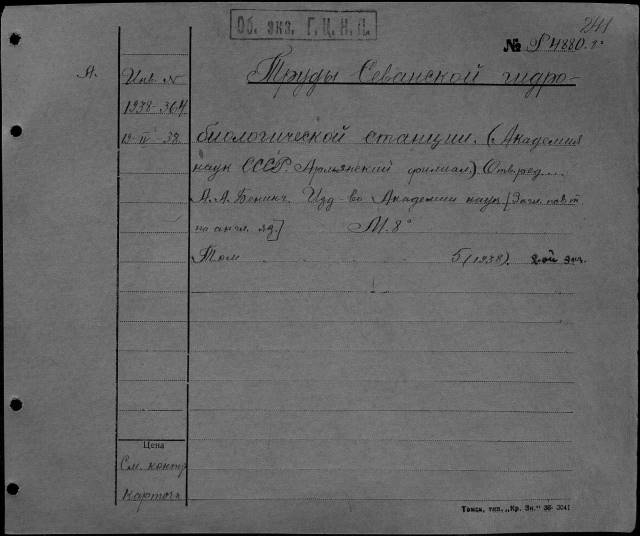 Об. экз. Г. Ц. Н. П.
241
№ P4880.г.
А. Инв. N Труды Севанской гидро-
1938-364
19-IV-38 биологической станции. (Академия
наук СССР. Армянский филиал.) Отв. ред....
А. Л. Бенинг. Изд-во Академии наук [Загл. пов. т.
на англ. яз.] М. 8°
Том 5 (1938). 2-ой экз.
Цена
См. контр
Карточк
Томск, тип. „Кр. Зн." 38- 3041